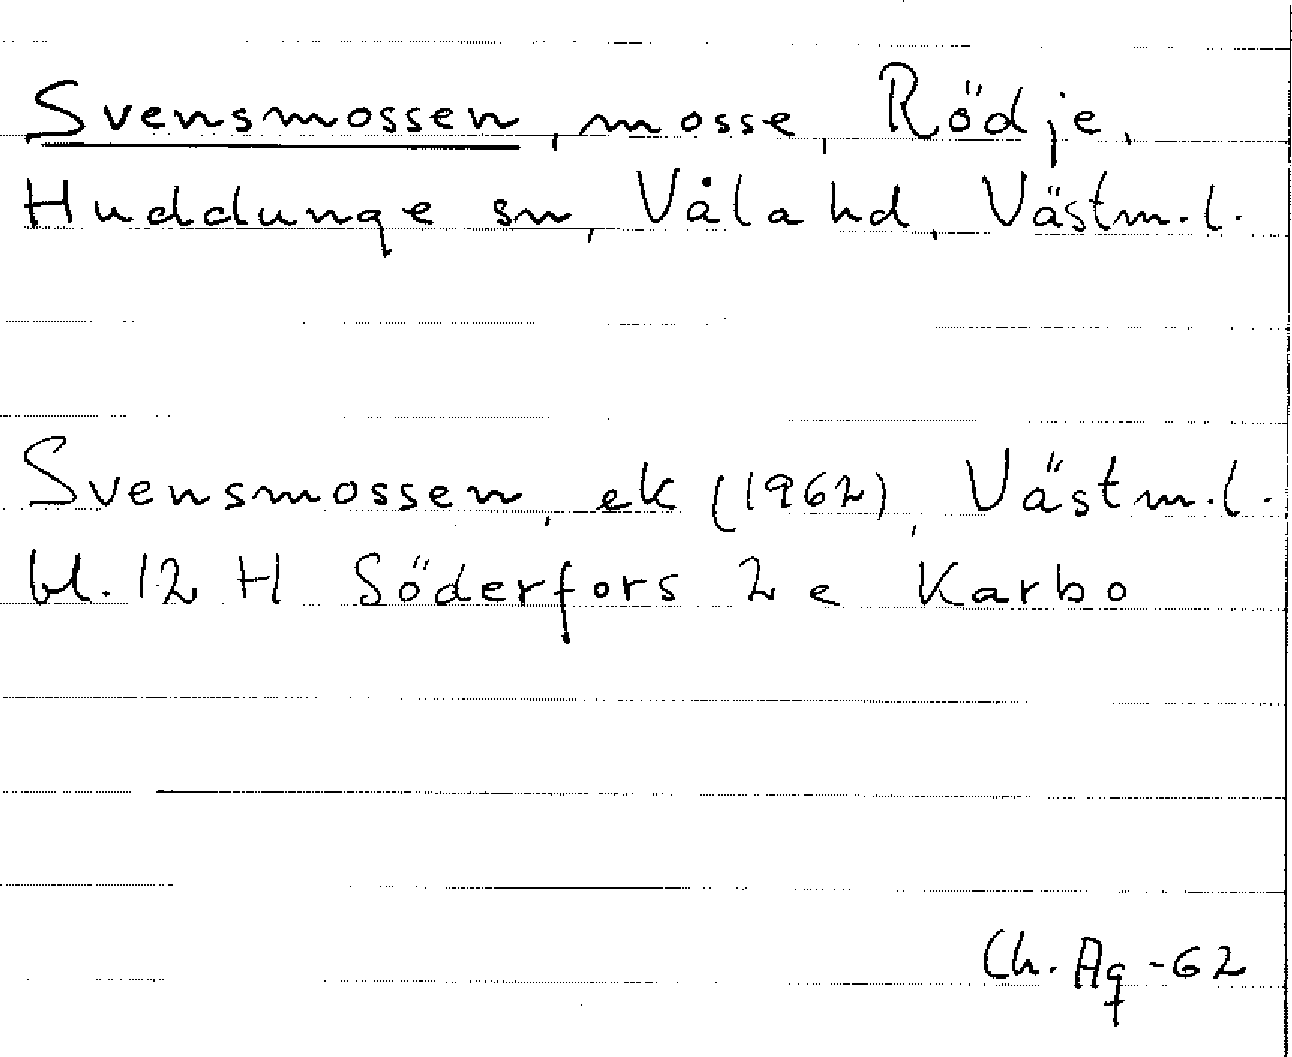 Svensmossen, mosse, Rödje,
Huddunge sn, Våla hd, Västm.l.
Svensmossen, ek (1962), Västm.l.
bl. 12 H Söderfors 2 e Karbo
Ch. Ag -62